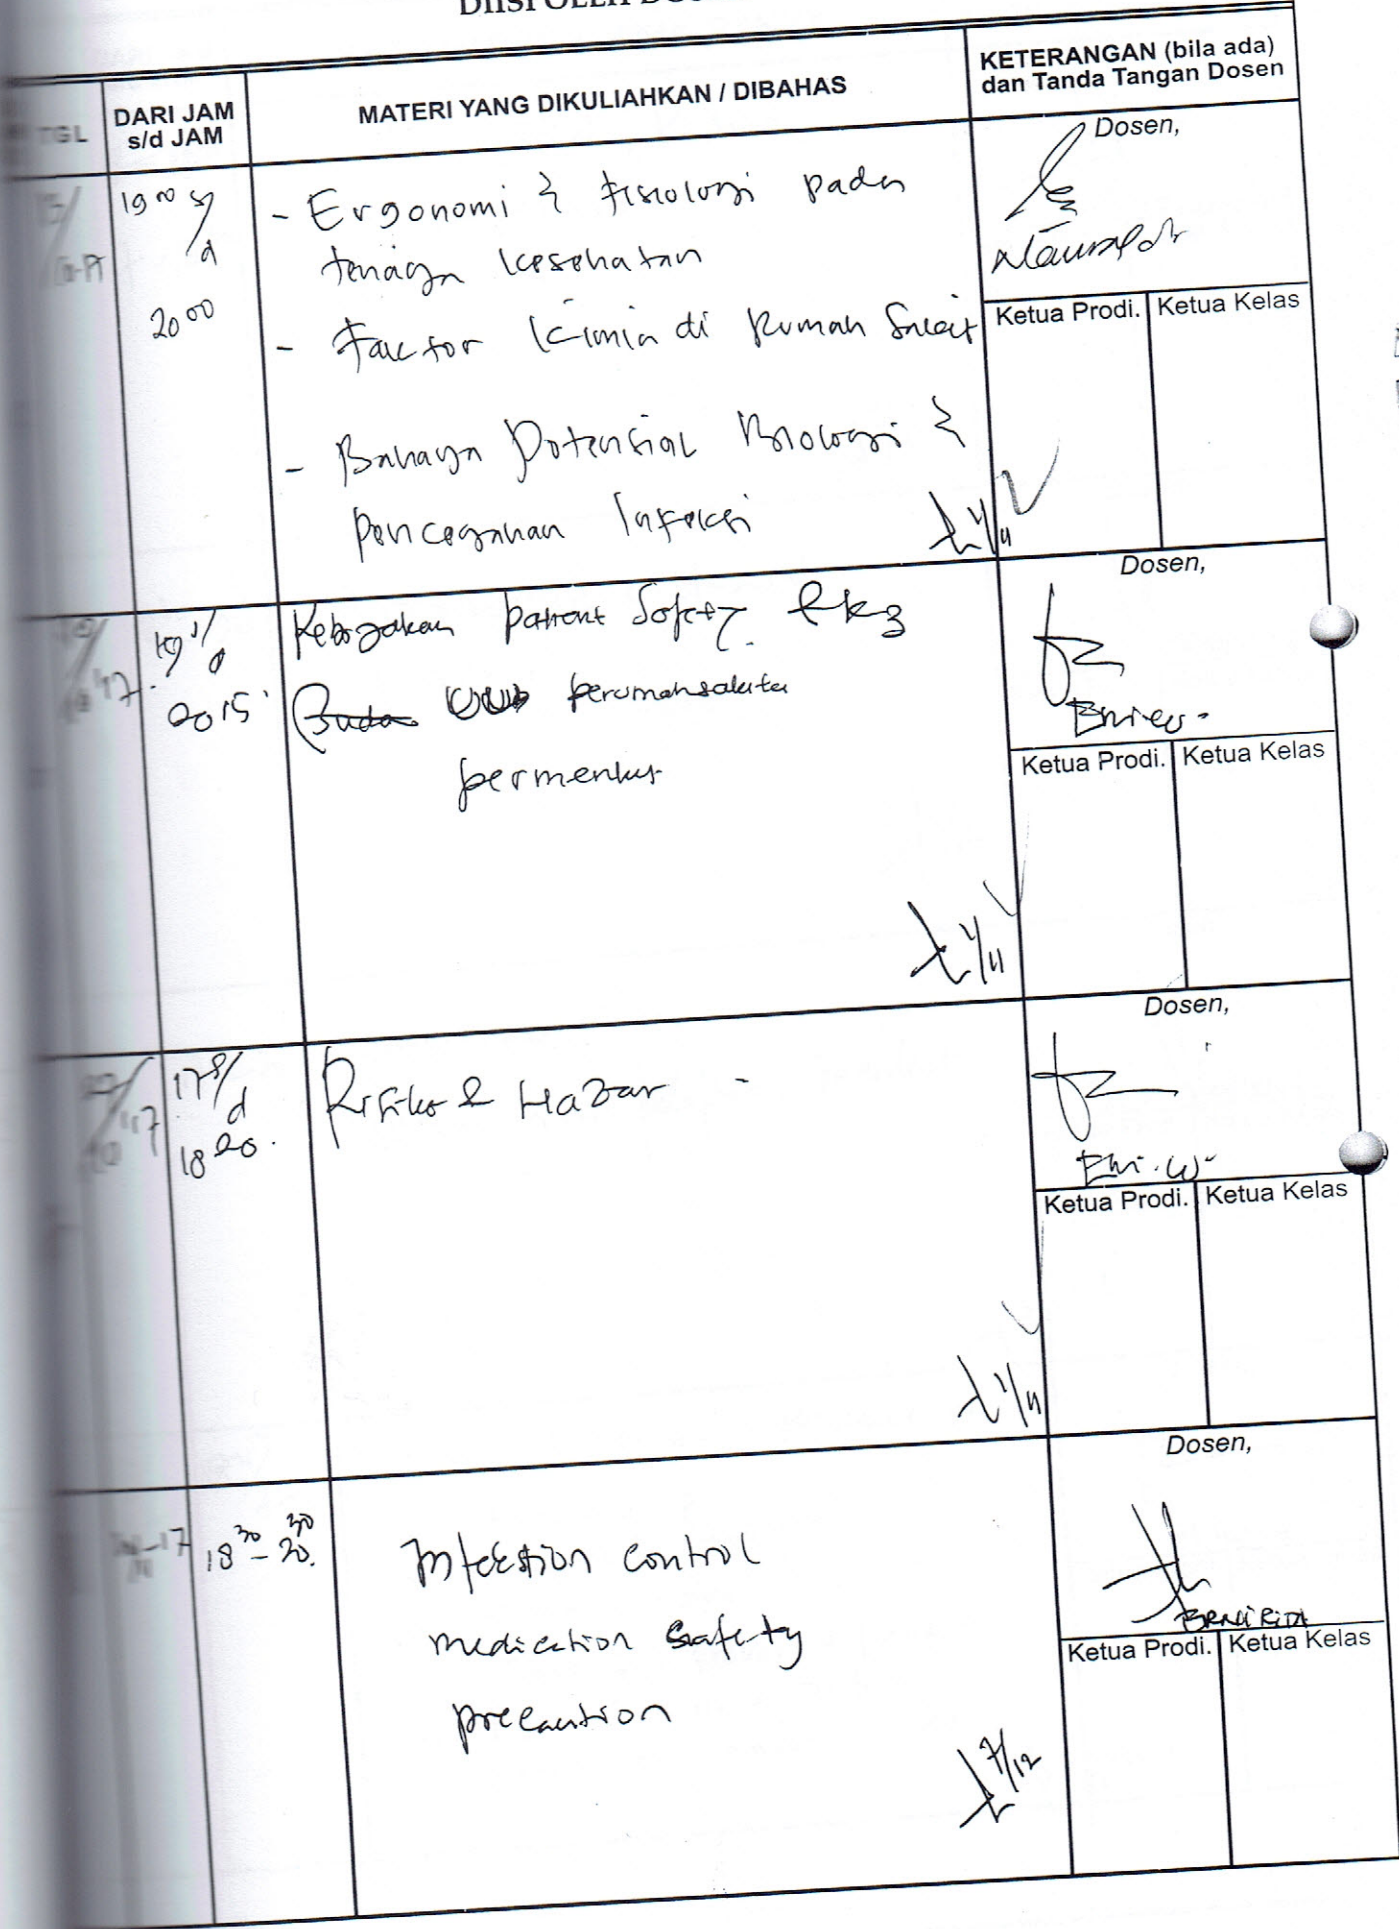 DIISI OLEH
TGL
DARI JAM
s/d JAM
MATERI YANG DIKULIAHKAN / DIBAHAS
KETERANGAN (bila ada)
dan Tanda Tangan Dosen
19 00 s/
d
20 00
- Ergonomi & fisiologi pada
tenaga kesehatan
- Faktor Kimia di Rumah Sakit
- Bahaya Potensial Biologi &
pencegahan Infeksi
1/11
Dosen,
Ketua Prodi.
Ketua Kelas
'17
19 s/d
20 15
Kebijakan patient Safety & k3
UU perumahsakita
permenkes
1/11
Dosen,
Ketua Prodi.
Ketua Kelas
'17
17 s/
d
18 20.
Risiko & Hazar -
1/11
Dosen,
Ketua Prodi.
Ketua Kelas
-17
18 30 - 20 30.
Infection control
medication safety
precaution
7/12
Dosen,
Ketua Prodi.
Ketua Kelas